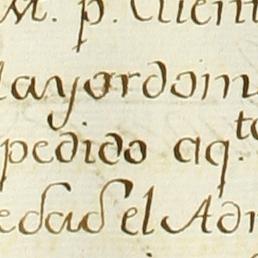 M. p. Client
layordom
pedido aq.to
edad el Adm